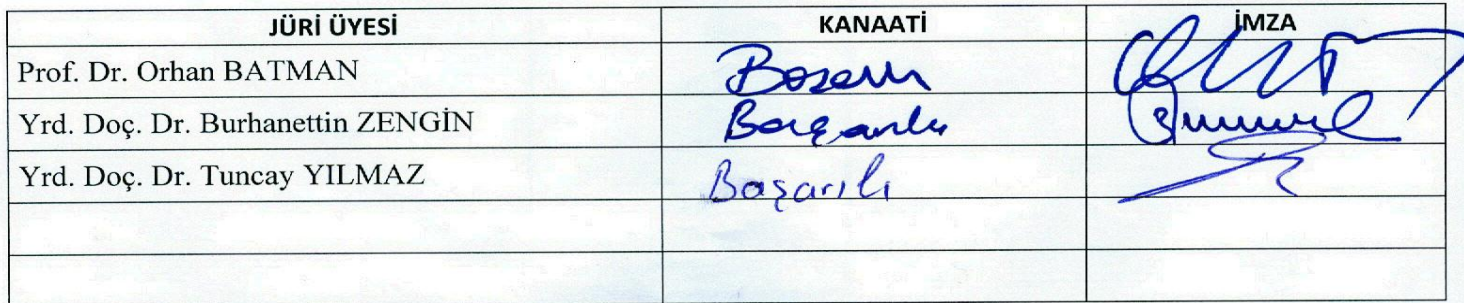 JÜRİ ÜYESİ KANAATİ İMZA
Prof. Dr. Orhan BATMAN
Yrd. Doç. Dr. Burhanettin ZENGİN
Yrd. Doç. Dr. Tuncay YILMAZ Başarılı